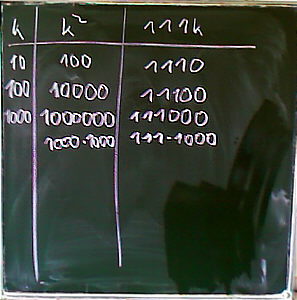 k k² 111k
10 100 1110
100 10000 11100
1000 1000000 111000
1000·1000 111·1000